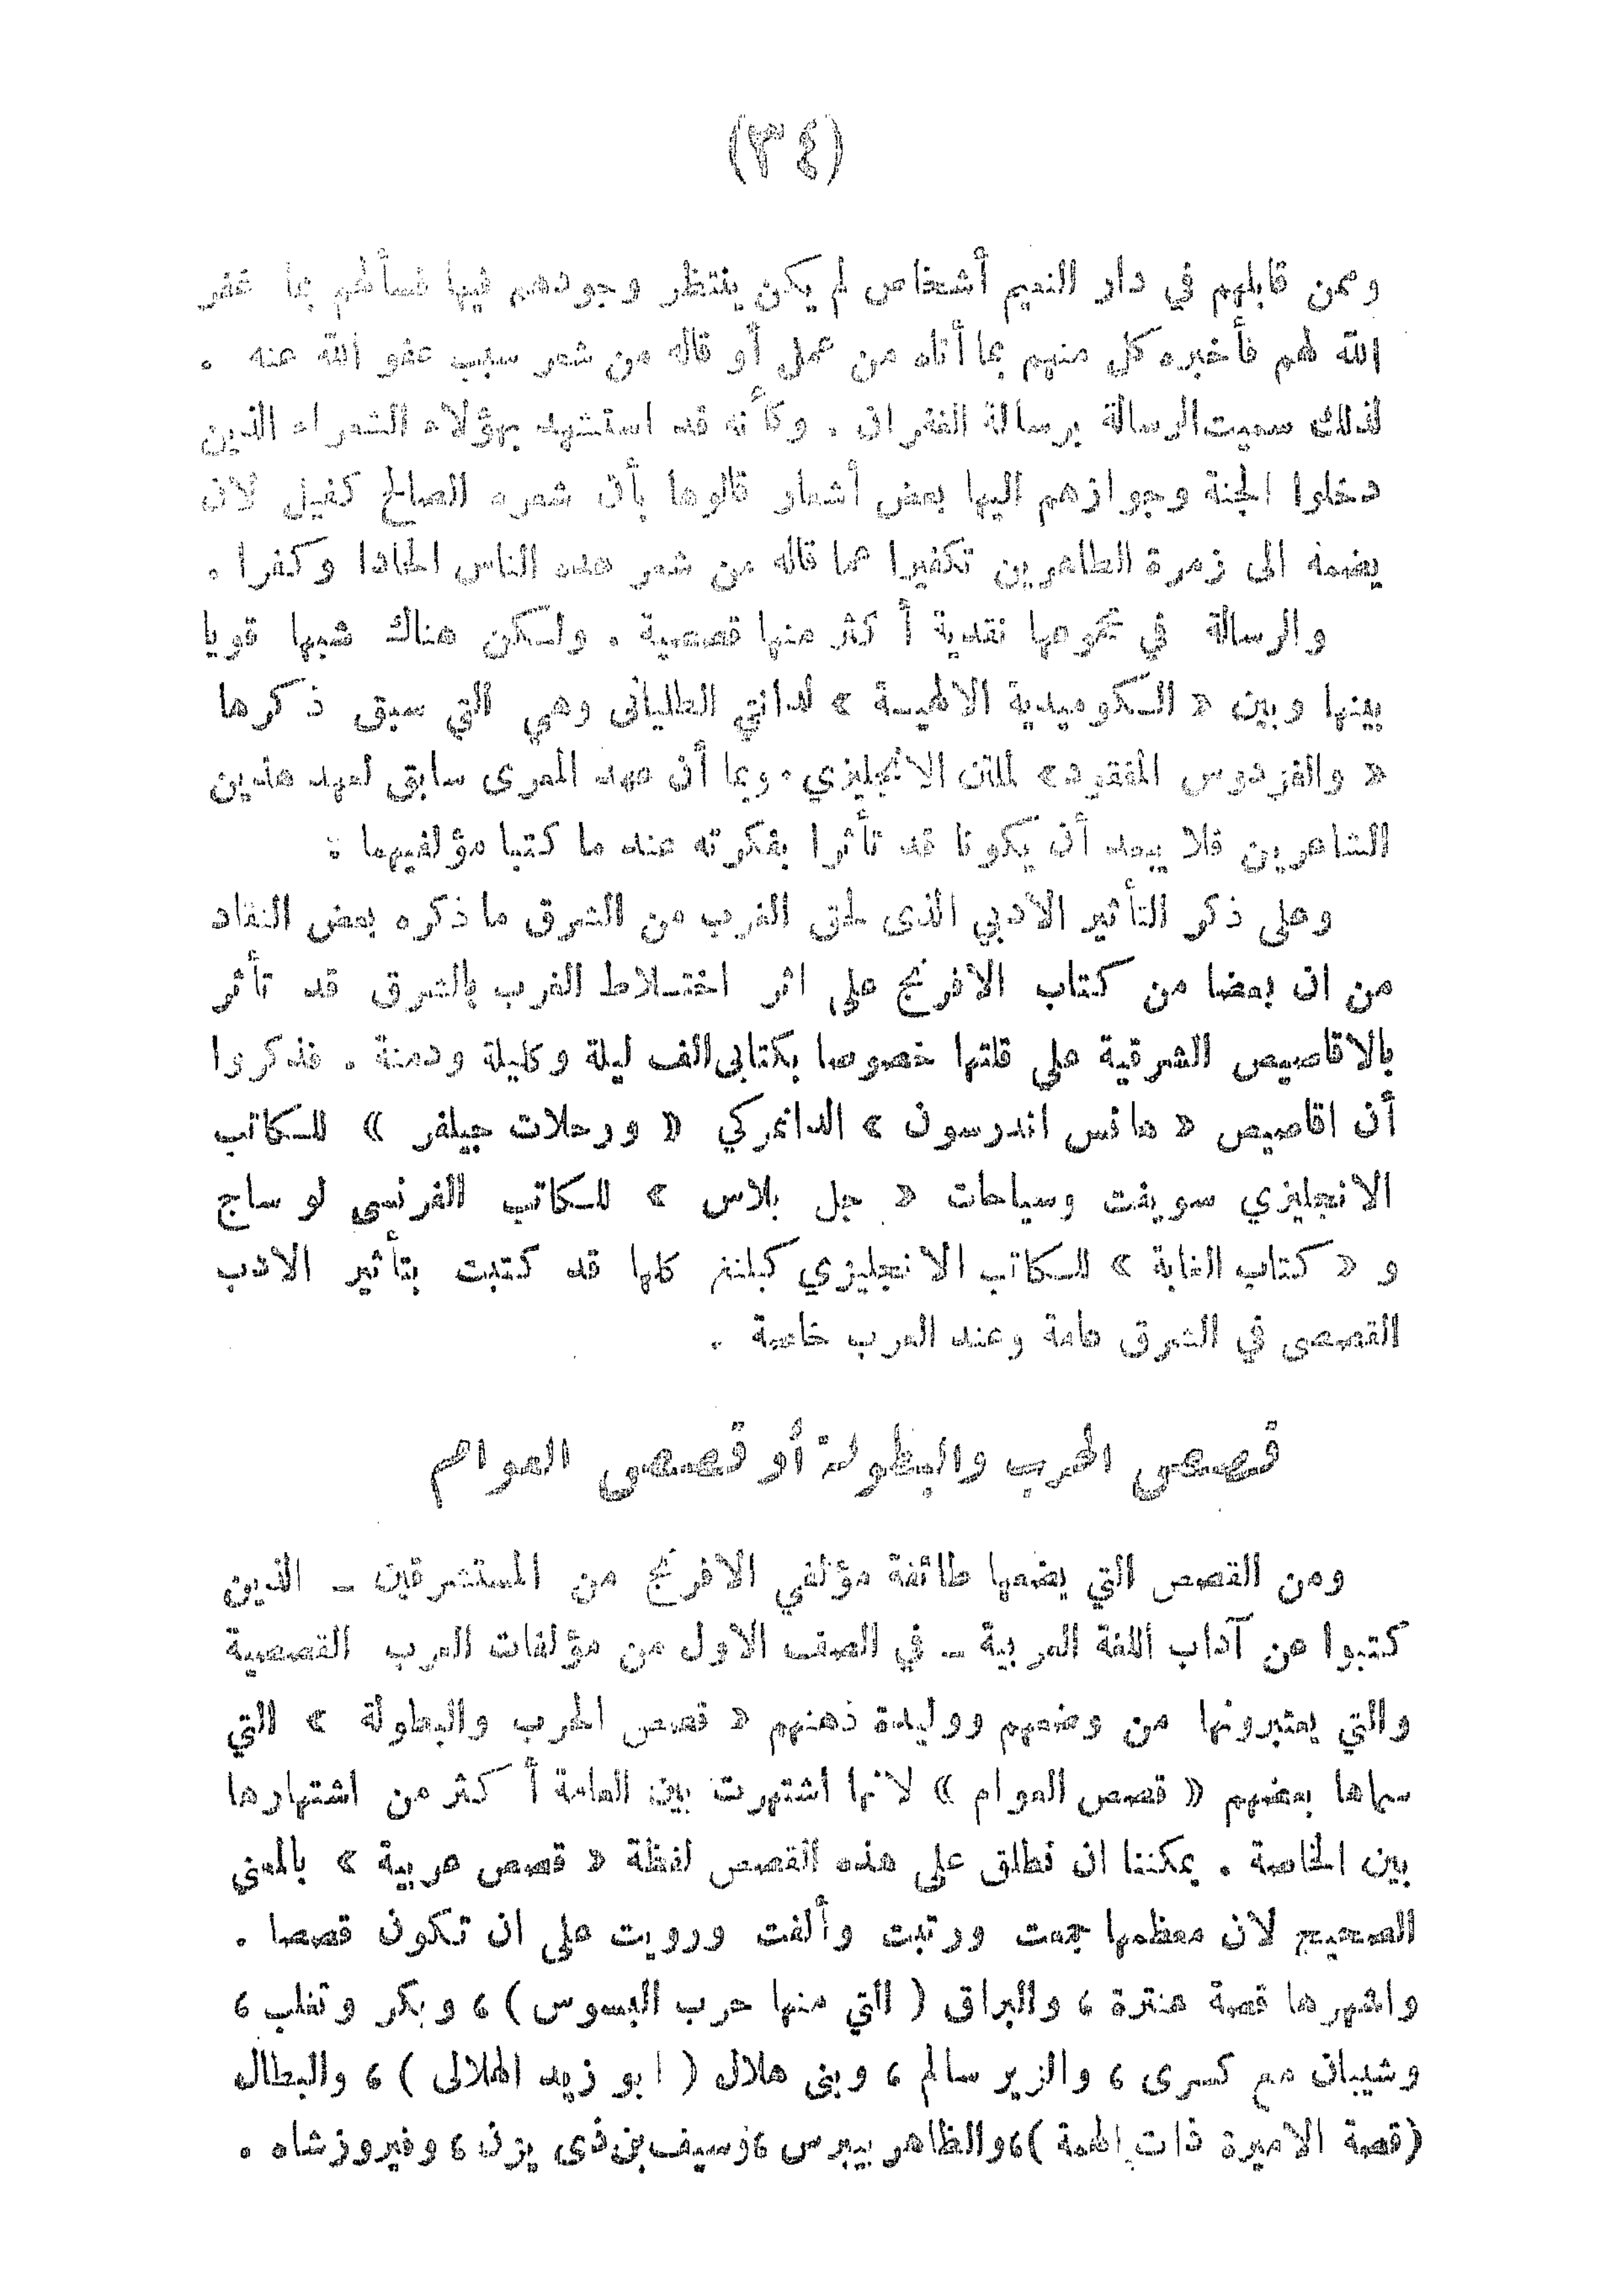 (٣٤)
وممن قابلهم في دار النعيم أشخاص لم يكن ينتظر وجودهم فيها فسألهم بما غفر
الله لهم فأخبره كل منهم بما أتاه من عمل أو قاله من شعر سبب عفو الله عنه .
لذلك سميت الرسالة برسالة الغفران . وكأنه قد استشهد بهؤلاء الشعراء الذين
دخلوا الجنة وجوازهم اليها بعض أشعار قالوها بأن شعره الصالح كفيل لان
يضمه الى زمرة الطاهرين تكفيرا عما قاله من شعر عده الناس الحادا وكفرا .
والرسالة في نحوها نقدية أكثر منها قصصية . ولكن هناك شبها قويا
بينها وبين « الكوميدية الالهية » لدانتي الطلياني وهي التي سبق ذكرها
« والفردوس المفقود» لملتن الانجليزي . وبما أن عهد المعرى سابق لعهد هذين
الشاعرين فلا يبعد أن يكونا قد تأثرا بفكرته عند ما كتبا مؤلفيهما :
وعلى ذكر التأثير الادبي الذى لحق الغرب من الشرق ما ذكره بعض النقاد
من ان بعضا من كتاب الافرنج على اثر اختلاط الغرب بالشرق قد تأثر
بالاقاصيص الشرقية على قلتها خصوصا بكتابى الف ليلة وكليلة ودمنة . فذكروا
أن اقاصيص « هانس اندرسون » الدانمركي « ورحلات جيلفر » للكاتب
الانجليزي سويفت وسياحات « جل بلاس » للكاتب الفرنسى لو ساج
و « كتاب الغابة » للكاتب الانجليزي كبلنغ كلها قد كتبت بتأثير الادب
القصصى في الشرق عامة وعند العرب خاصة .
قصص الحرب والبطولة أو قصص العوام
ومن القصص التي يضعها طائفة مؤلفي الافرنج من المستشرقين ــ الذين
كتبوا عن آداب اللغة العربية ــ في الصف الاول من مؤلفات العرب القصصية
والتي يعتبرونها من وضعهم ووليدة ذهنهم « قصص الحرب والبطولة » التي
سماها بعضهم « قصص العوام » لانها اشتهرت بين العامة أكثر من اشتهارها
بين الخاصة . يمكننا ان نطلق على هذه القصص لفظة « قصص عربية » بالمعنى
الصحيح لان معظمها جمعت ورتبت وألفت ورويت على ان تكون قصصا .
واشهرها قصة عنترة ، والبراق ( التي منها حرب البسوس ) ، وبكر وتغلب ،
وشيبان مع كسرى ، والزير سالم ، وبنى هلال ( ابو زيد الهلالى ) ، والبطال
(قصة الاميرة ذات الهمة )،والظاهر بيبرس ،وسيف بن ذى يزن ، وفيروزشاه .